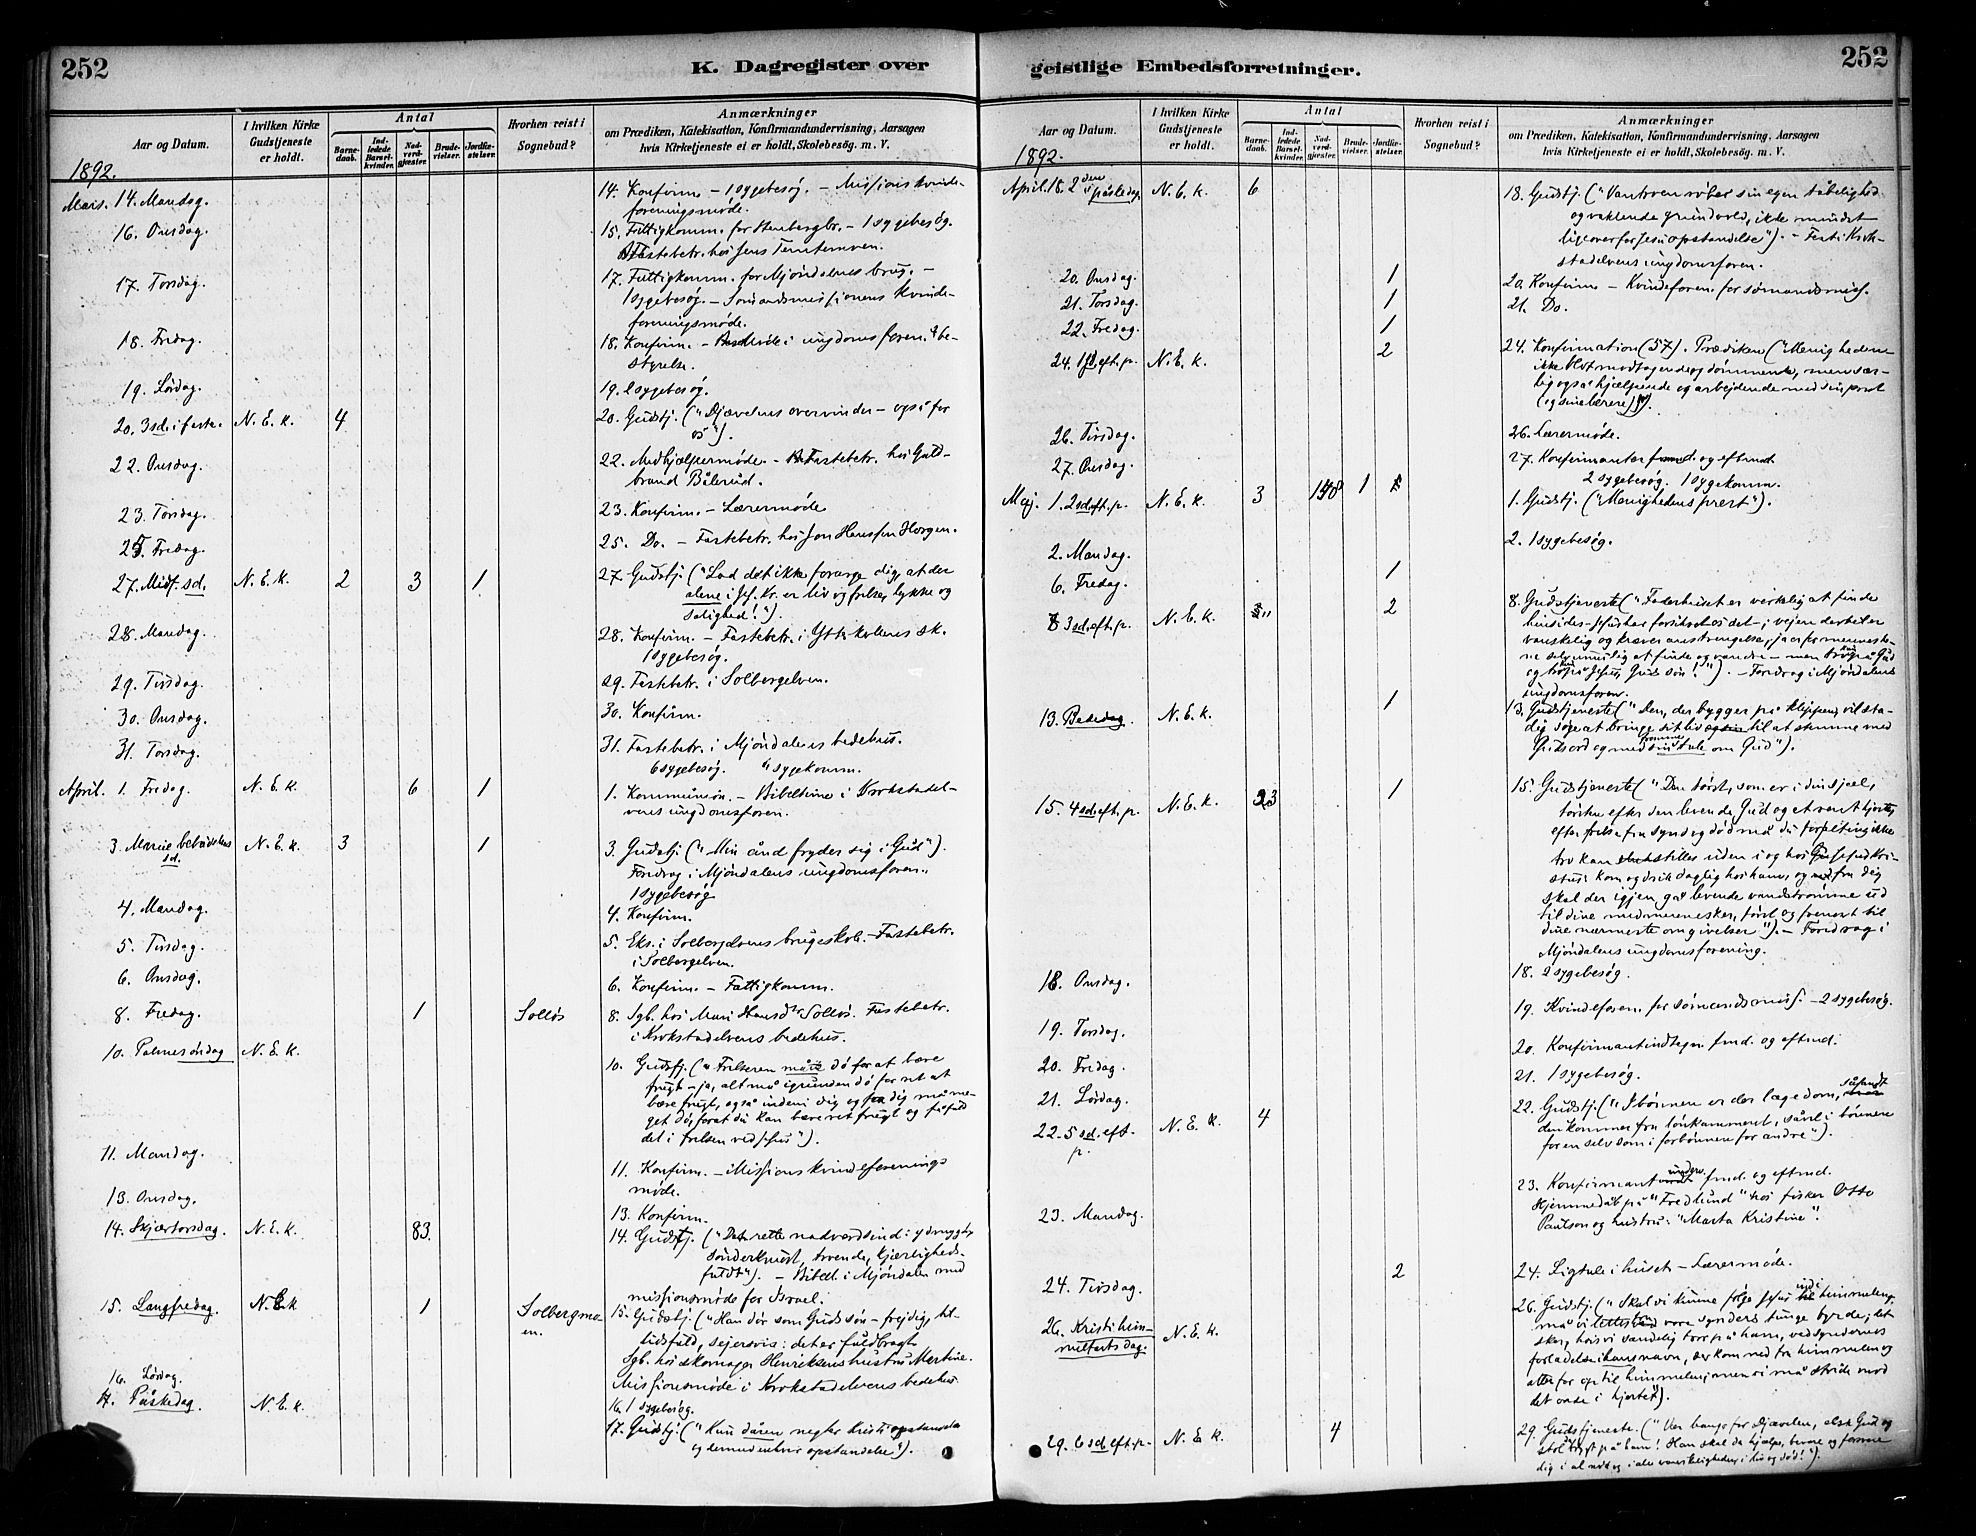 252
K. Dagregister over
Aar og Datum.
I hvilken Kirke Gudstjeneste er holdt.
Antal
Barnedaab.
Indledede Barselkvinder.
Nadverdgjester.
Brudevielser.
Jordfæstelser.
Hvorhen reist i Sognebud?
Anmærkninger
om Prædiken, Katekisation, Konfirmandundervisning, Aarsagen
hvis Kirketjeneste ei er holdt, Skolebesög. m. V.
1892.
Mars. 14. Mandag. 14. Konfirm. – 1 sygebesøg. – Missionskvinde-
foreningsmøde.
16. Onsdag. 15. Fattigkomm. for Stenbergbr. – 1 sygebesøg.
Fastebetr. hos Jens
17. Torsdag. 17. Fattigkomm. for Mjøndalens brug. –
1 sygebesøg. – Sømandsmissionens kvinde-
foreningsmøde.
18. Fredag. 18. Konfirm. – Møde i ungdomsforen.s be-
styrelse.
19. Lørdag. 19. 2 sygebesøg.
20. 3 sd. i faste. N. E. K. 4 20. Gudstj. ("Djævelens overvinder – også for
os").
22. Onsdag. 22. Medhjælpermøde. – Fastebetr. hos Guld-
brand Bålerud.
23. Torsdag. 23. Konfirm. – Lærermøde
25. Fredag. 25. Do. – Fastebetr. hos Jon Hansen Horgen.
27. Midf. sd. N. E. K. 2 3 1 27. Gudstj. ("Lad det ikke forarge dig, at der
alene i Jes. Kr. er liv og frelse, lykke og
salighed!").
28. Mandag. 28. Konfirm. – Fastebetr. i Ytterkollens sk.
1 sygebesøg.
29. Tirsdag. 29. Fastebetr. i Solbergelven.
30. Onsdag. 30. Konfirm.
31. Torsdag. 31. Fastebetr. i Mjøndalens bedehus.
6 sygebesøg. " sygekomm.
April. 1. Fredag. N. E. K. 6 1 1. Kommunion. – Bibeltime i Krokstadel-
vens ungdomsforen.
3. Mariæ bebudelses sd. N. E. K. 3 1 3. Gudstj. ("Min ånd fryder sig i Gud").
Foredrag i Mjøndalens ungdomsforen..
1 sygebesøg
4. Mandag. 4. Konfirm.
5. Tirsdag. 5. Eks. i Solbergelvens brugsskole. – Fastebetr.
i Solbergelven.
6. Onsdag. 6. Konfirm. – Fattigkomm.
8. Fredag. 1 Solløs 8. Sgb. hos Mari Hansdtr Solløs. Fastebetr.
i Krokstadelvens bedehus.
10. Palmesøndag N. E. K. 10. Gudstj. ("Frelseren måtte dø for at bære
frugt – ja, alt må i grunden dø for ret at
bære frugt, også inden i dig og for dig må me-
get dø, forat du kan bære ret frugt og få fuld
del i frelsen ved Jesus").
11. Mandag. 11. Konfirm. – Missionskvindeforenings
møde.
13. Onsdag. 13. Konfirm.
14. Skjærtorsdag. N. E. K. 83. 14. Gudstj. ("Det rette nadverdsind: ydmygt,
sønderknust, troende, kjærligheds-
fuldt"). – Bibell. i Mjøndalen med
missionsmøde for Israel.
15. Langfredag. N. E. K 1 Solbergmoen. 15. Gudstj. ("Han dør som Guds søn – frejdig, til-
lidsfuld, sejersvis: det er fuldbragt
Sgb. hos skomager Henriksens hustru Martine.
Missionsmøde i Krokstadelvens bedehus
16. Lørdag. 16. 1 sygebesøg.
17. Påskedag. N. E. K. 17. Gudstj. ("Kun dåren negter Kristi opstandelse
og dermed enhver opstandelse").
252
geistlige Embedsforretninger.
Aar og Datum.
I hvilken Kirke Gudstjeneste er holdt.
Antal
Barnedaab.
Indledede Barselkvinder.
Nadverdgjester.
Brudevielser.
Jordfæstelser.
Hvorhen reist i Sognebud?
Anmærkninger
om Prædiken, Katekisation, Konfirmandundervisning, Aarsagen
hvis Kirketjeneste ei er holdt, Skolebesög. m. V.
1892.
April. 18. 2den påskedag. N. E. K. 6 18. Gudstj. ("Vantroen røber sin egen tåbelighed
og vaklende grundvold, ikke mindst
ligeoverfor Jesu opstandelse"). – Fest i Krok-
stadelvens ungdomsforen.
20. Onsdag. 1 20. Konfirm. – Kvindeforen. for sømandsmiss.
21. Torsdag. 1 21. Do.
22. Fredag. 1
24. 1 sd. eft. p. N. E. K. 2 24. Konfirmation (57). Prædiken ("Menighedene
ikke blot modtagende og dømmende, men sær-
lig også hjælpende og arbejdende med sin prest
(og sine lærere)").
26. Tirsdag. 26. Lærermøde.
27. Onsdag. 27. Konfirmanter fmd. og eftmd.
2 sygebesøg. 1 sygekomm.
Maj. 1. 2 sd. eft. p. N. E. K. 3 1 1. Gudstj. ("Menighedens prest").
2. Mandag. 2. 1 sygebesøg.
6. Fredag. 1
8 3 sd. eft. p. N. E. K. 2 8. Gudstjeneste ("Faderhuset er virkelig at finde
hinsides – Jesus har forsikret os det –; vejen dertil er
vanskelig og kræver anstrengelse, ja er for menneske-
ne selv umulig at finde og vandre – men tro på Gud
og tro på Jesus, Guds søn!"). – Foredrag i Mjøndalens
ungdomsforen.
13. Bededag. N. E. K. 1 13. Gudstjeneste ("Den, der bygger på klippen, vil sta-
dig søge at bringe sit liv til at stemme med
Guds ord og med sin fromme tale om Gud").
15. 4 sd. eft. p. N. E. K. 3 1 15. Gudstjeneste ("Den tørst, som er i din sjæl,
tørsten efter den levende Gud og et rent hjerte,
efter frelse fra synd og død må du for alting ikke
tro kan stilles uden i og hos Jesus Kri-
stus: kom og drik daglig hos ham, og fra dig
skal der igjen gå levende vandstrømme ud
til dine medmennesker, først og fremst til
dine nærmeste omgivelser"). – Foredrag i
Mjøndalens ungdomsforening.
18. Onsdag. 18. 2 sygebesøg.
19. Torsdag. 19. Kvindeforen. for sømandsmiss. – 2 sygebesøg.
20. Fredag. 20. Konfirmantindtegn. fmd. og eftmd.
21. Lørdag. 21. 1 sygebesøg.
22. 5 sd. eft. p. N. E. K. 4 22. Gudstj. ("I bønnen er der lægedom, såsandt
den kommer fra lønkammeret, såvel i bønnen
for en selv som i forbønnen for andre").
23. Mandag. 23. Konfirmantunderv. fmd. og eftmd.
Hjemmedåb på "Fredlund" hos fisker Otto
Paulson og hustru: "Marta Kristine".
24. Tirsdag. 2 24. Ligtale i huset – Lærermøde.
26. Kristi himmelfartsdag. N. E. K. 26. Gudstj. ("Skal vi kunne følge Jesus ind i himmelen,
må vi lettes for vore synders tunge byrde; det
sker, hvis vi vandelig tror på ham, ved syndernes
forladelse i hans navn, der kom ned fra himmelen og
atter for op til himmelen; men vi må stride mod
det onde i hjertet").
29. 6 sd. eft. p. N. E. K. 4 29. Gudstjeneste. ("Vær bange for djævelen, elsk Gud og
stol trygt på ham! Han skal da hjælpe, bevare og forsvare
dig i al nød og i alle vanskeligheder, i liv og død!").